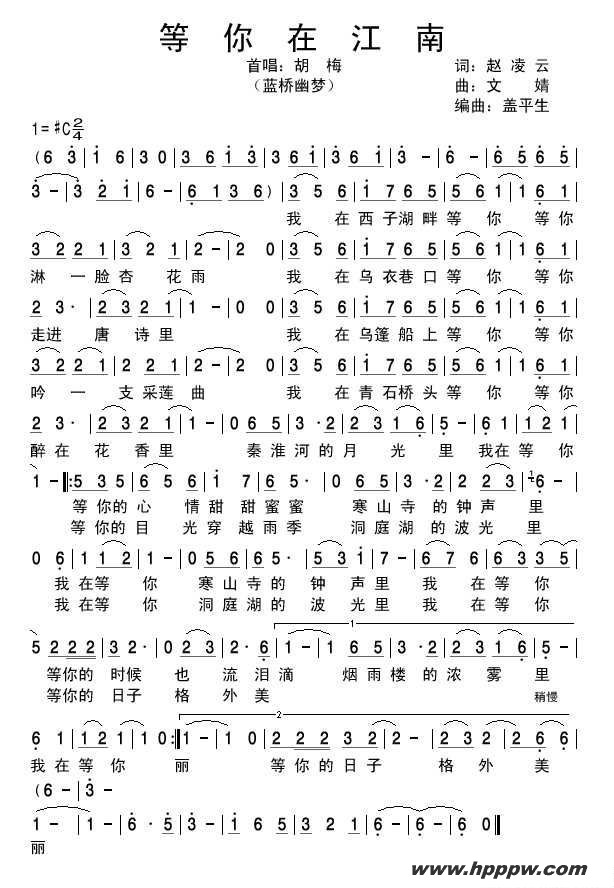 等 你 在 江 南
首唱：胡 梅
（蓝桥幽梦）
词：赵 凌 云
曲：文 婧
编曲：盖平生
1=#C2/4
(6 3|1 6|3 0|3 6 1 3|3 6 1|3 -|6 -|6 5 6 5|
3 -|3 2 1|6 -|6 1 3 6)|3 5 6|1 7 6 5|5 6 1|1 6 1|
我 在西子湖畔等 你 等你
3 2 2 1|3 2 1|2 -|2 0|3 5 6|1 7 6 5|5 6 1|1 6 1|
淋 一脸杏 花雨 我 在乌衣巷口等 你 等你
2 3·|2 3 2 1|1 -|0 0|3 5 6|1 7 6 5|5 6 1|1 6 1|
走进 唐 诗里 我 在乌篷船上等 你 等你
3 2 2 1|3 2 1|2 -|2 0|3 5 6|1 7 6 5|5 6 1|1 6 1|
吟 一 支采莲 曲 我 在青石桥头等 你 等你
2 3·|2 3 2 1|1 -|0 6 5|3·2|2 3 1 6|5 -|6 1|1 2 1|
醉在 花 香里 秦淮河的月 光 里 我在等 你
1 -|:5 3 5|6 5 6|1 7|6 5·|0 6 5|3·2|2 2 3|6 -|
等你的心 情甜 甜蜜蜜 寒山寺 的钟声 里
等你的目 光穿 越雨季 洞庭湖 的波光 里
0 6|1 1 2|1 -|0 6 5|6 5·|5 3 1|6 7 6|6 3 3 5|
我在等 你 寒山寺的 钟 声里 我 在等你
我在等 你 洞庭湖的 波 光里 我 在等你
1
5 2 2 2|3 2·|0 2 3|2·6|1 -|1 6 5|3·2|2 3 6|5 -|
等你的 时候 也 流泪滴 烟雨楼 的浓 雾 里
等你的 日子 格 外美
稍慢
2
6 1|1 2 1|1 0:|1 -|1 0|2 2 2 3 2|2 -|2 3 2 3|2 6 6|
我在等 你 丽 等你的日子 格 外 美
(6 -|3 -
1 -|1 -|3·5|3 6 1 3|6 1 2|6 -|6 0‖
丽
www.hpppw.com